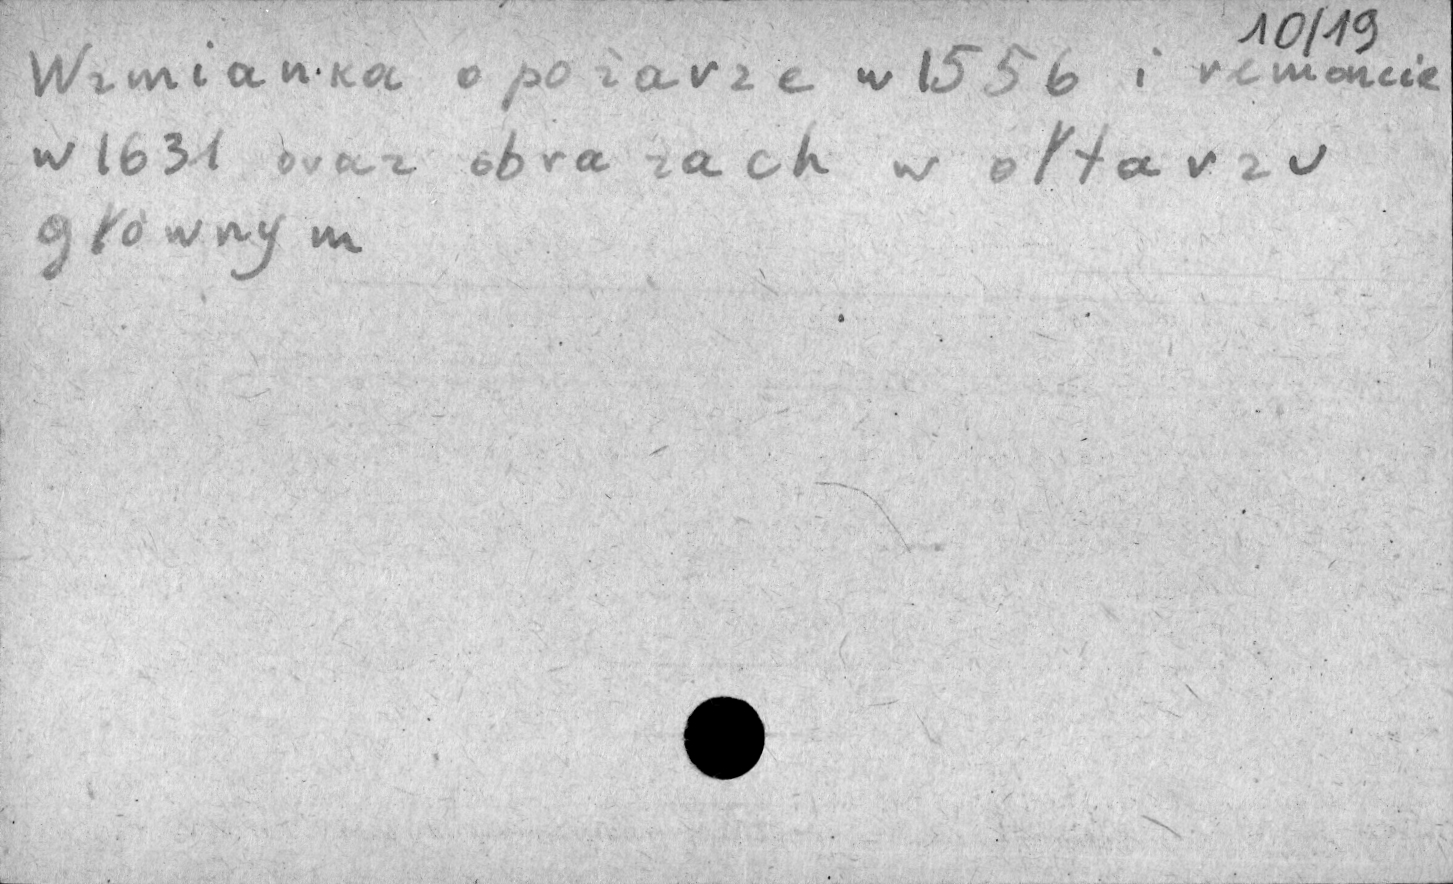 10/19
Wzmianka o pożarze w 1556 i remoncie
w 1631 oraz obrazach w ołtarzu
głównym